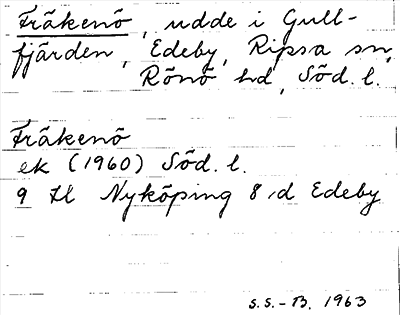 Fräkenö, udde i Gull-
fjärden, Edeby, Ripsa sn,
Rönö hd, Söd. l.
Fräkenö
ek (1960) Söd. l.
9 H Nyköping 8 d Edeby
S.S.-B. 1963